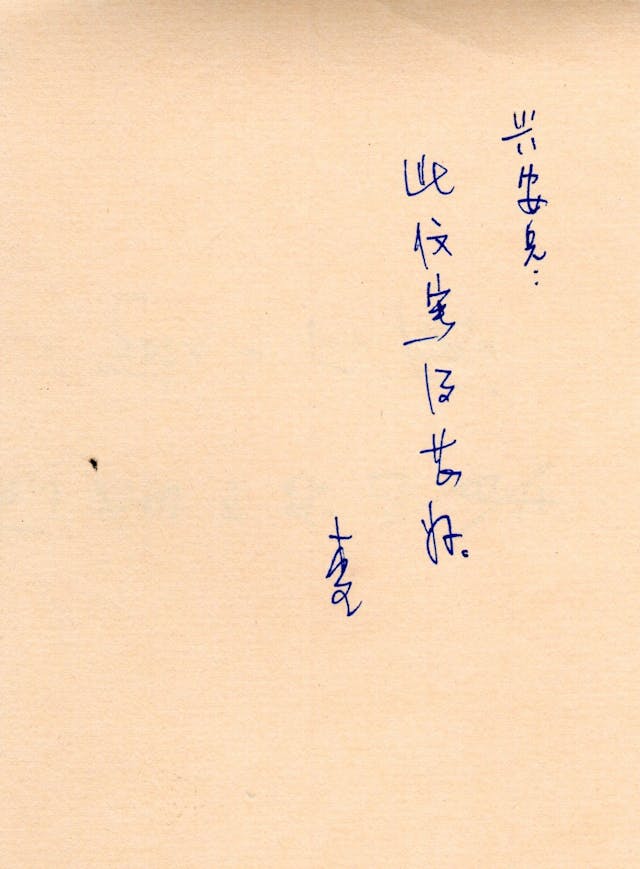 兴安兄：
此仅写得甚好。